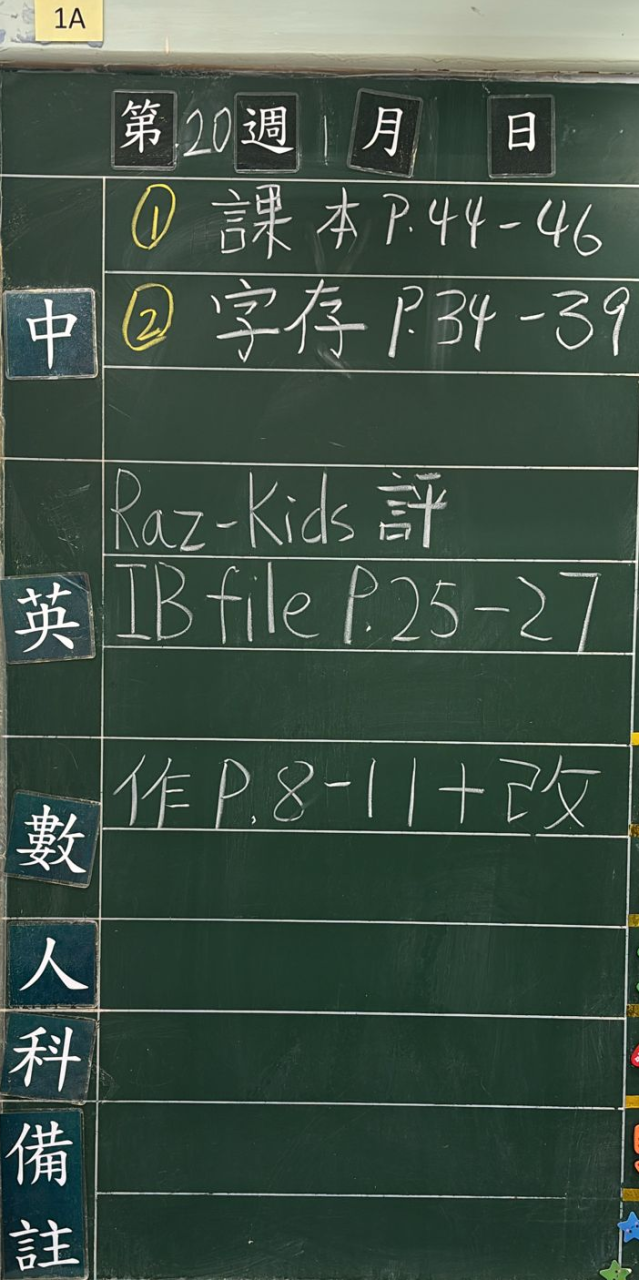 1A
第20週1月 日
中
① 課本P.44-46
② 字存P.34-39
英
Raz-Kids 評
IB file P.25-27
數
作P.8-11+改
人
科
備註